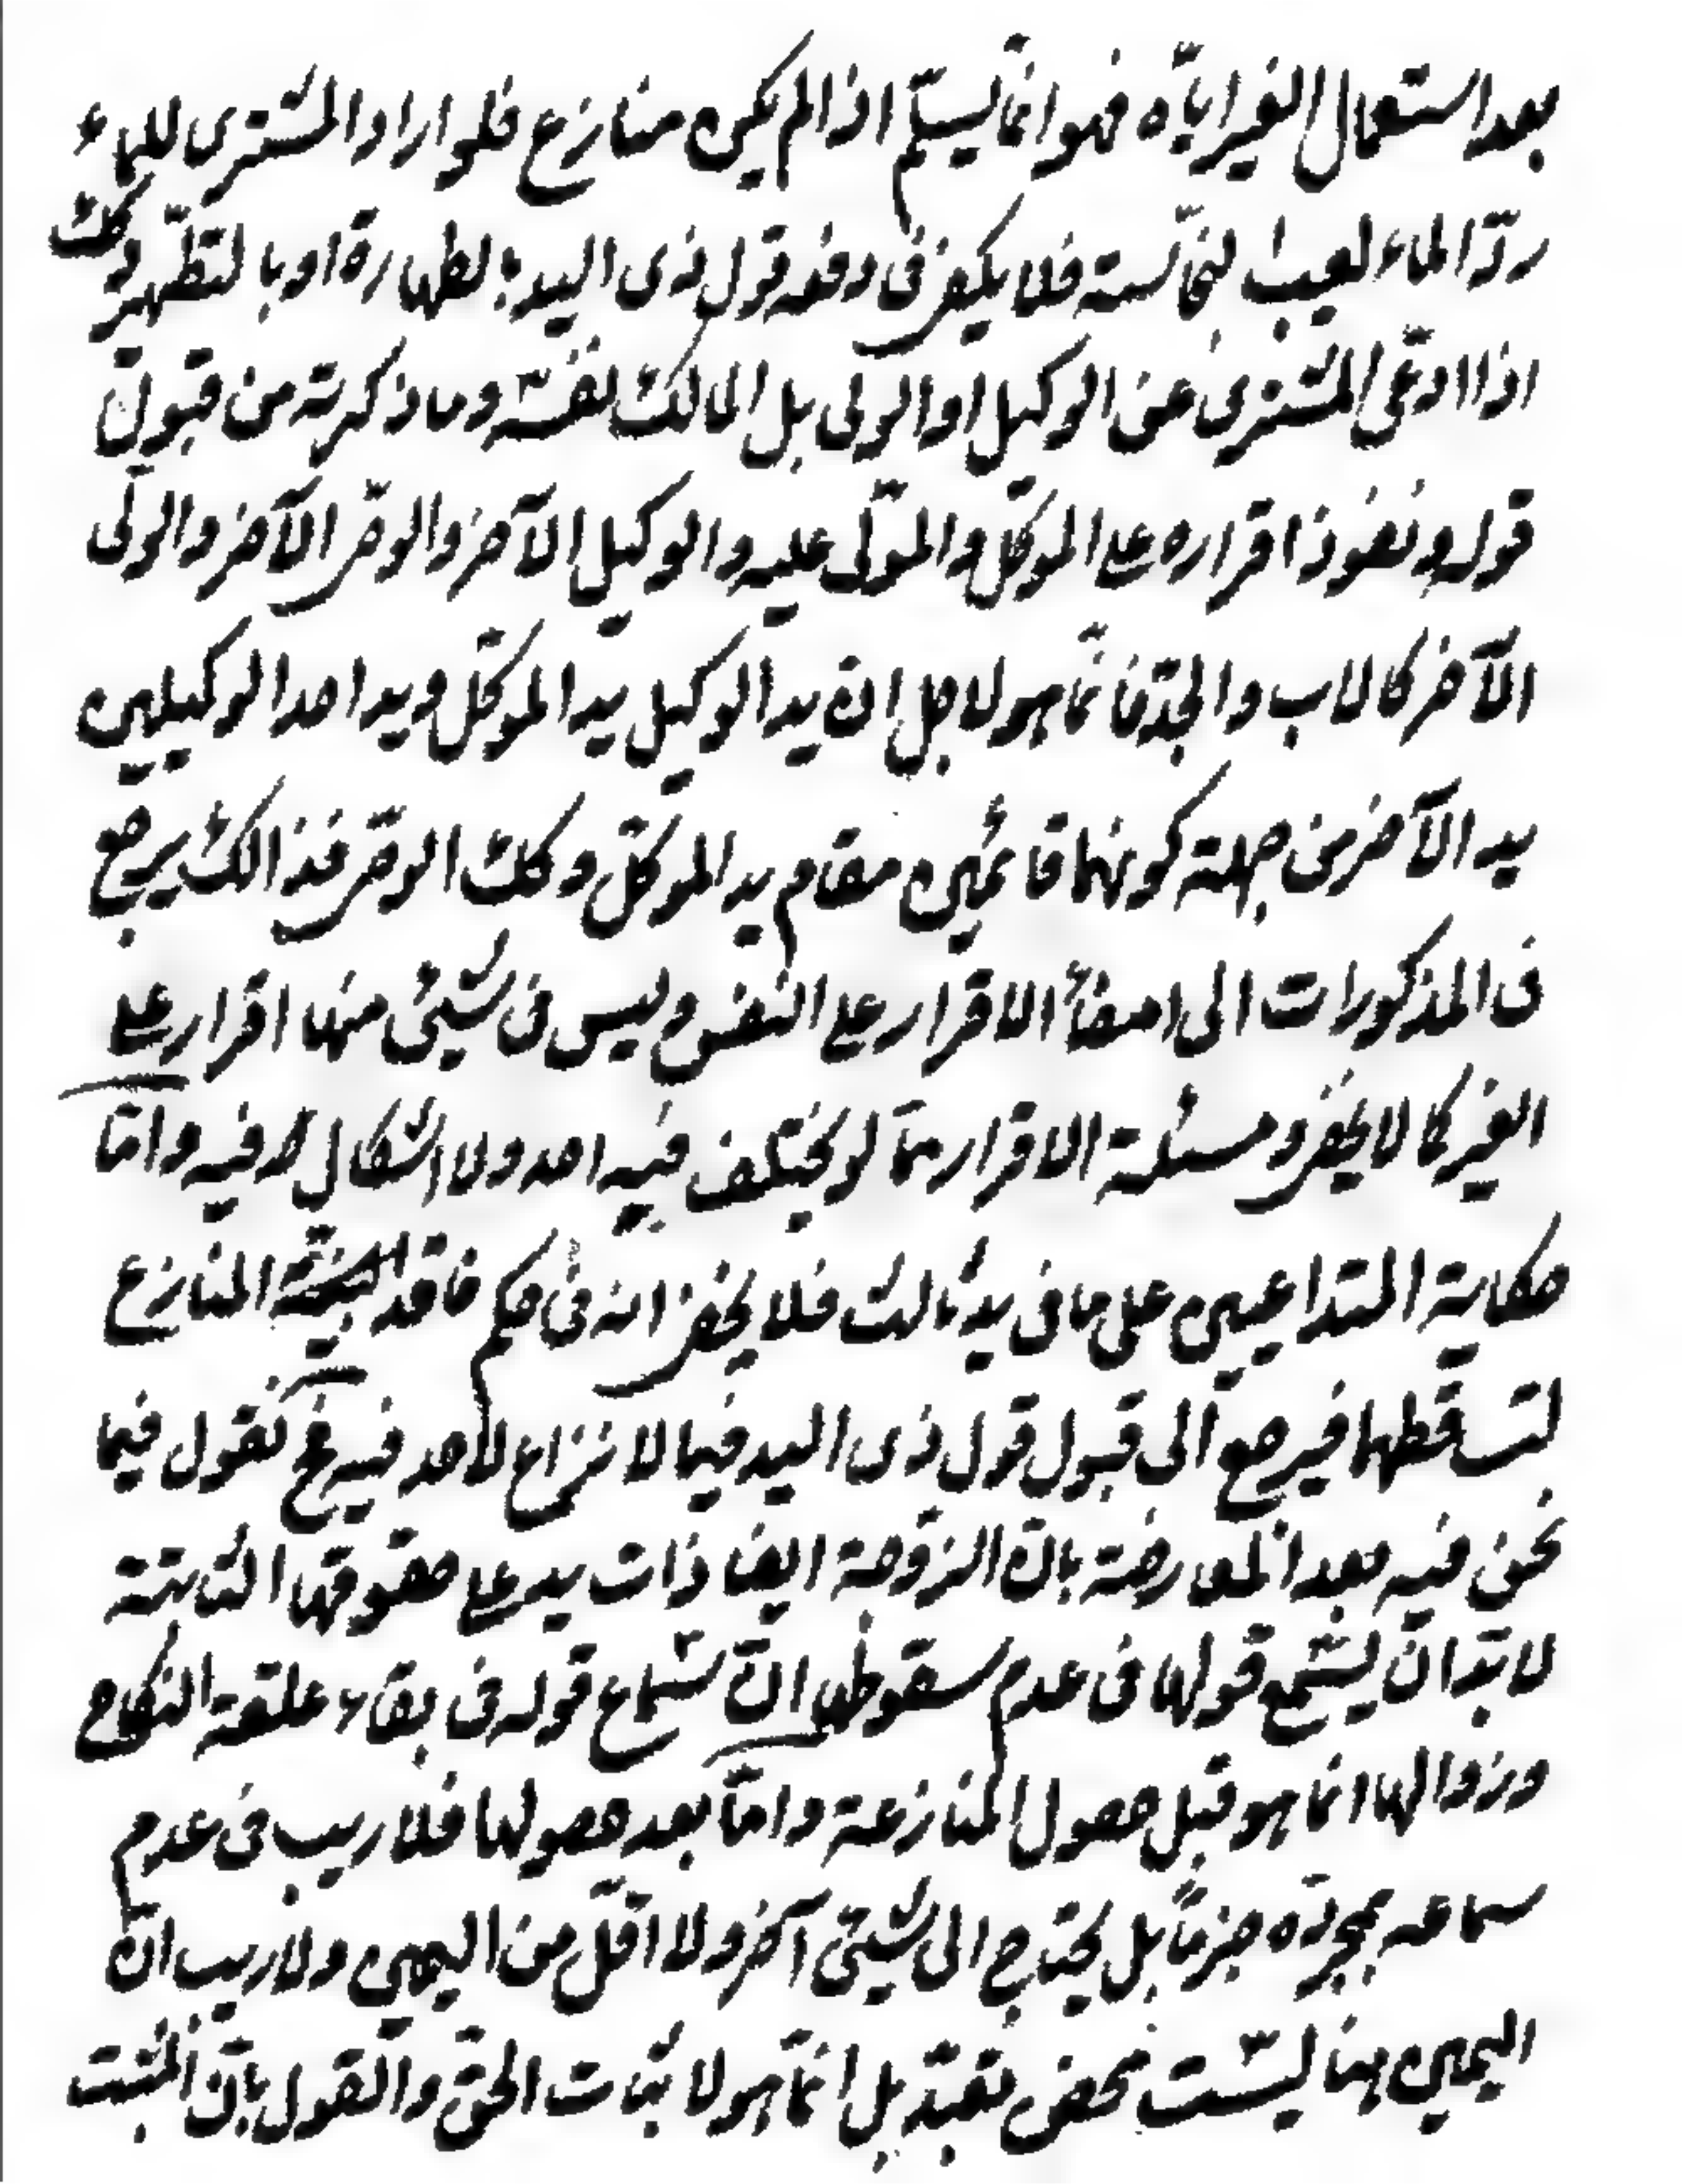 بعد استعمال الغير اياه فهو انما يسلم اذا لم يكن منازع فلو اراد المشترى للماء
ردّ الماء لعيب نجاسته فلا يكفى فى دفعه قول ذى اليد بالطهارة او بالتطهير وكك
اذا ادعى المشترى من الوكيل او الولى بل المالك نفسه وما ذكرته من قبول
قوله ونفوذ اقراره على الموكل والمولى عليه والوكيل الآخر والوصى الآخر والولى
الآخر كالاب والجد فانما هو لاجل ان يد الوكيل يد الموكل ويد احد الوكيلين
يد الآخر من جهة كونهما قائمين مقام يد الموكل وكك الوصى فذالك يرجع
فى المذكورات الى امضاء الاقرار على النفس وليس فى شيئ منها اقرار على
الغير كما لا يخفى ومسئلة الاقرار مما لم يختلف فيه احد ولا اشكال فيه واما
حكاية المتداعيين على ما فى يد ثالث فلا يخفى انه فى حكم فاقد المنازع
لتساقطهما فيرجع الى قبول قول ذى اليد فيما لا نزاع لاحد فيه فح نقول فيما
نحن فيه بعد المعارضة بان الزوجة ايضا ذات يد على حقوقها الثابتة
لا بد ان يسمع قولها فى عدم سقوطها ان سماع قوله فى بقاء علقة النكاح
وزوالها انما هو قبل حصول المنازعة واما بعد حصولها فلا ريب فى عدم
سماعه بمجرده جزما بل يحتاج الى شيئ آخر ولا اقل من اليمين ولا ريب ان
اليمين هنا ليست محض تعبد بل انما هو لاثبات الحق والقول بان المثبت